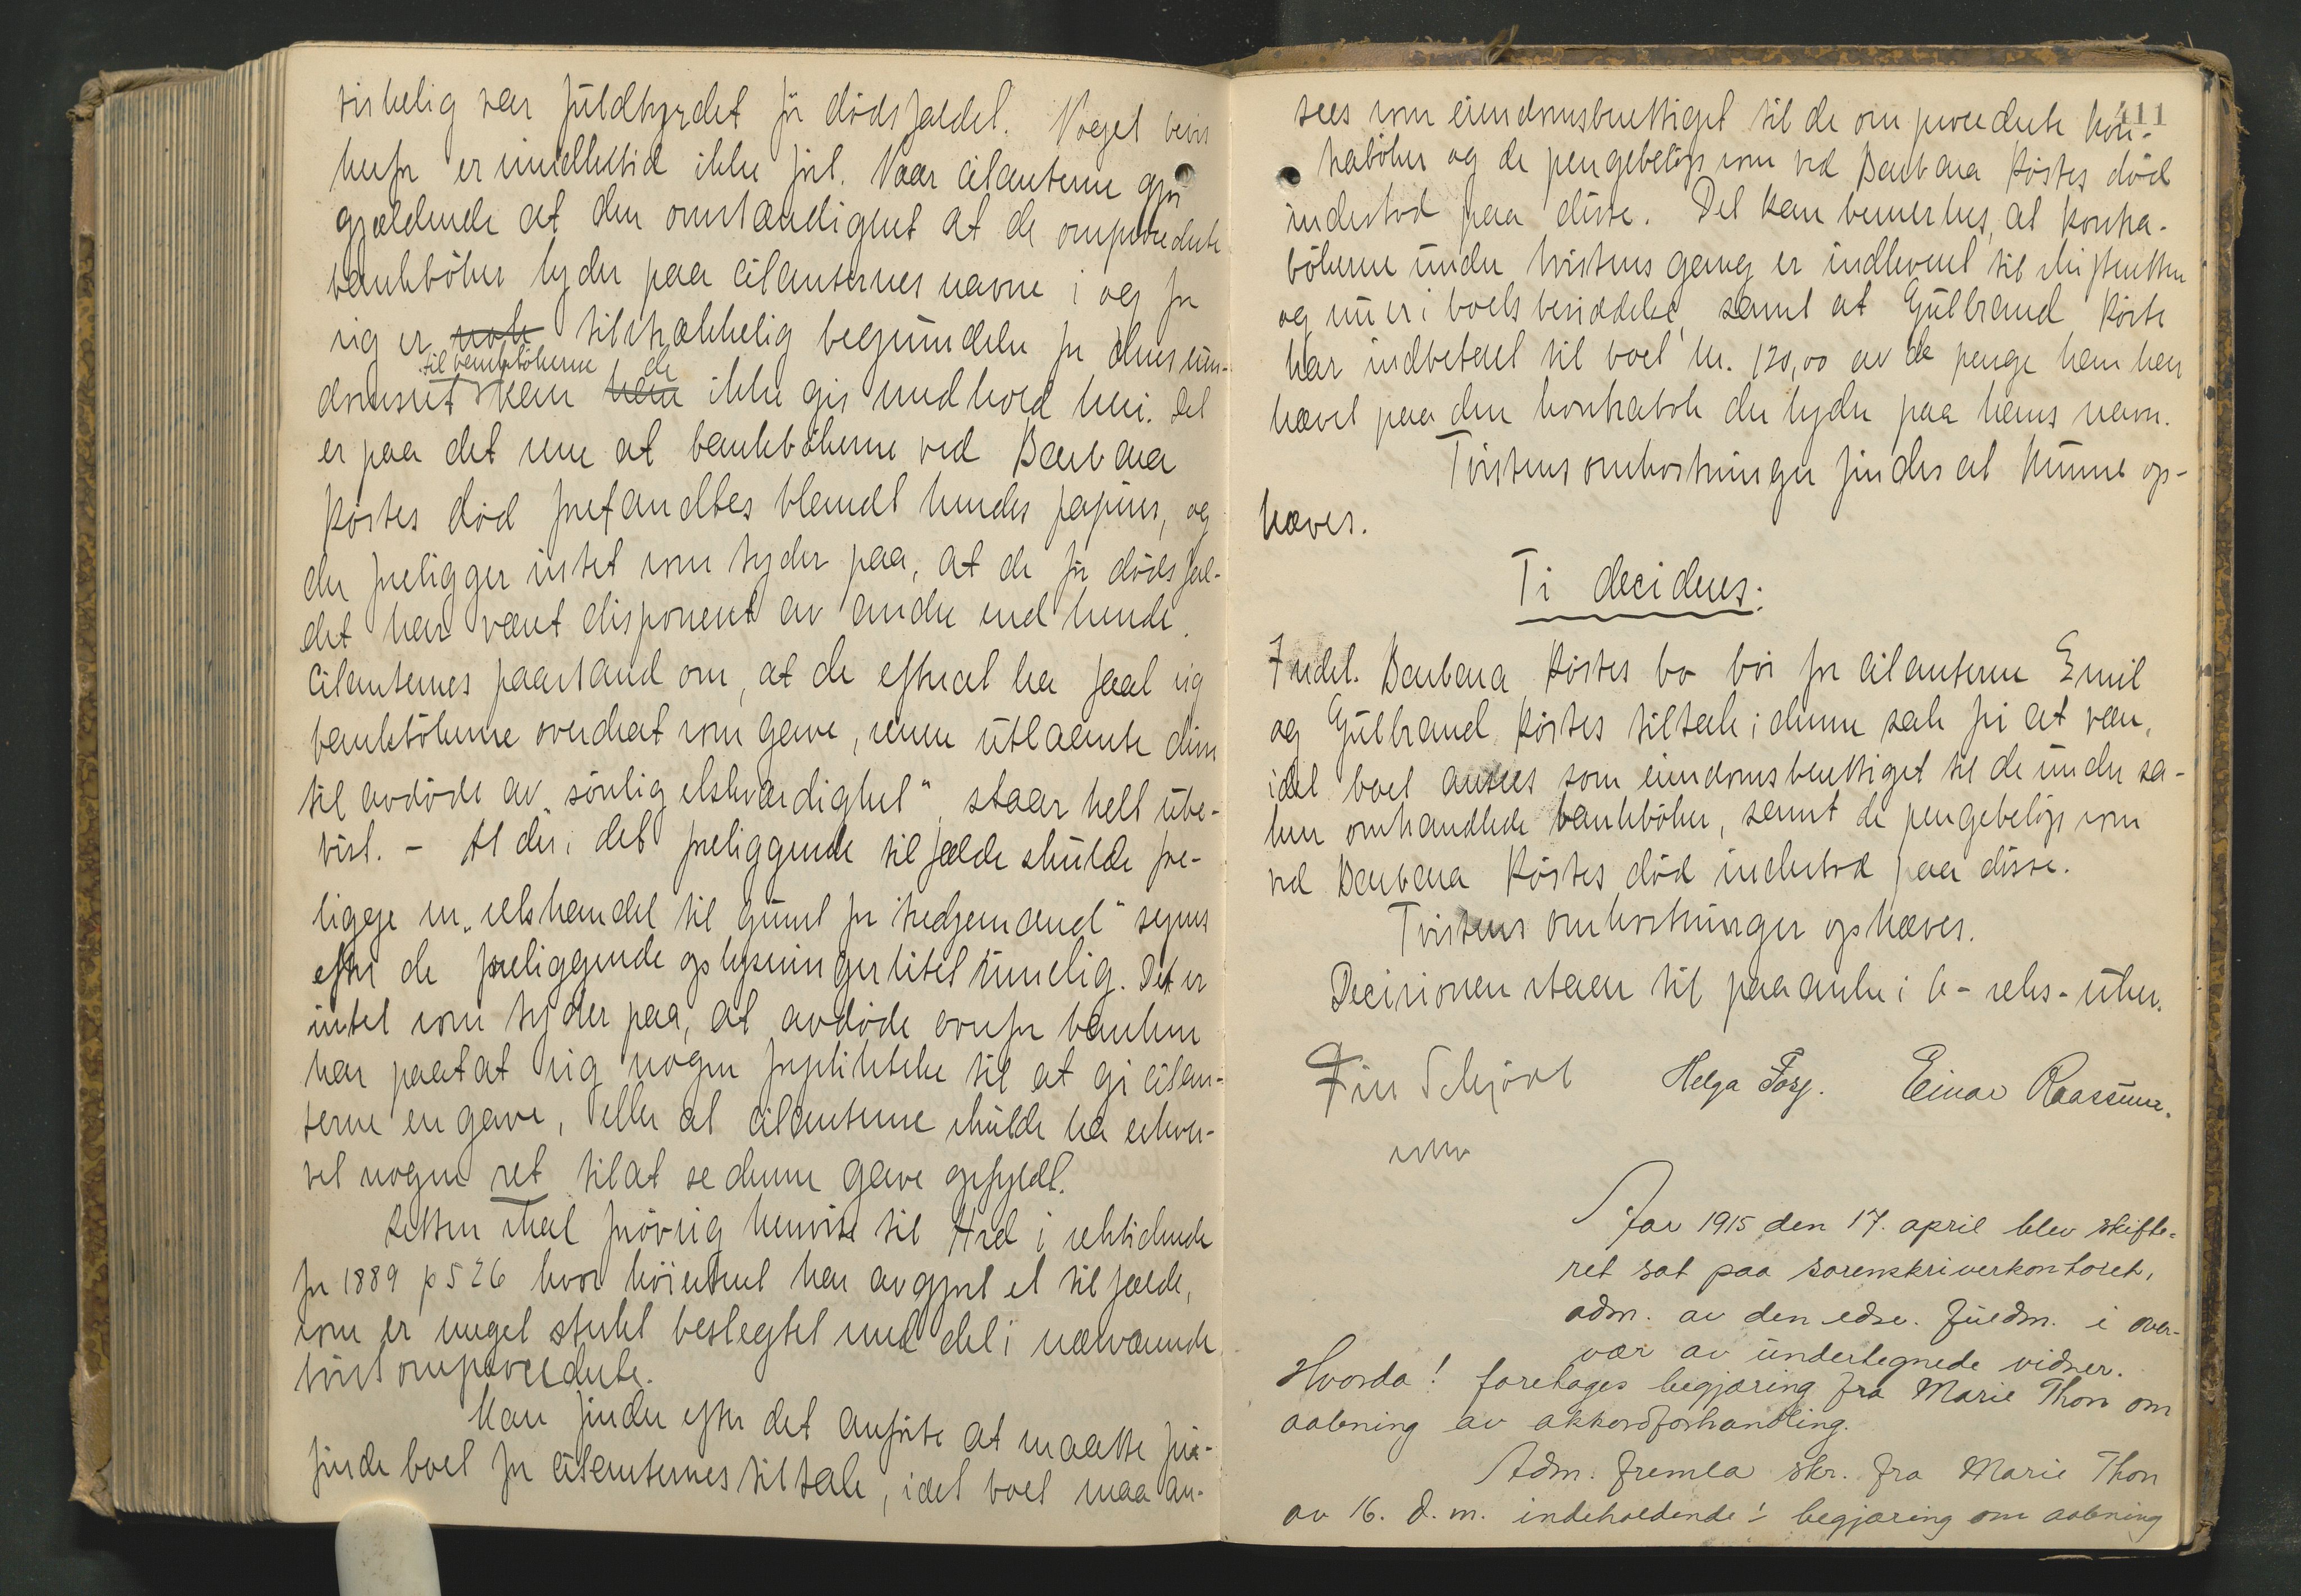 virkelig var fuldbyrdet før dødsfaldet. Noget bevis
herfor er imidlertid ikke ført. Naar citanterne gjør
gjældende at den omstændighet at de omprocederte
bankbøker lyder paa citanternes navne i og for
sig er nok tilstrækkelig begrundelse for deres eien-
domsret til bankbøkerne kan han de ikke gis medhold heri. Det
er paa det rene at bankbøkerne ved Barbara
Køstes død forefandtes blandt hendes papirer, og
der foreligger intet som tyder paa, at de før dødsfal-
det har været disponert av andre end hende.
Citanternes paastand om, at de efterat ha faat sig
bankbøkerne overdrat som gave, igjen utlaante dem
til avdøde av "sønlig elskværdighet", staar helt ube-
vist. - At der i det foreliggende tilfælde skulde fore-
ligge en "retshandel til gunst for tredjemand" synes
efter de foreliggende oplysninger litet rimelig. Det er
intet som tyder paa, at avdøde overfor banken
har paatat sig nogen forpliktelse til at gi citan-
terne en gave, eller at citanterne skulde ha erhver-
vet nogen ret til at se denne gave opfyldt.
Retten skal forøvrig henvise til Hrd i retstidende
for 1889 p 526 hvor høiesteret har avgjort et tilfælde,
som er meget sterkt beslegtet med det i nærværende
tvist omprocederte.
Man finder efter det anførte at maatte fri-
finde boet for citanternes tiltale, idet boet maa an-
411
sees som eiendomsberettiget til de omprocederte kon-
trabøker og de pengebeløp som ved Barbara Køstes død
indestod paa disse. Det kan bemerkes, at kontra-
bøkerne under tvistens gang er indlevert til skifteretten
og nu er i boets besiddelse, samt at Gulbrand Køste
har indbetalt til boet kr. 120,00 av de penge han har
hævet paa den kontrabok der lyder paa hans navn.
Tvistens omkostninger findes at kunne op-
hæves.
Ti decideres:
Frdel. Barbara Køstes bo bør for citanterne Emil
og Gulbrand Køstes tiltale i denne sak fri at være,
idet boet ansees som eiendomsberettiget til de under sa-
ken omhandlede bankbøker, samt de pengebeløp som
ved Barbara Køstes død indestod paa disse.
Tvistens omkostninger ophæves.
Decisionen staar til paaanke i 6 - seks - uker.
Fin Schjørt Helga Forg. Einar Raassum.
Aar 1915 den 17. april blev skifte-
ret sat paa sorenskriverkontoret,
adm. av den edsv. fuldm. i over-
vær av undertegnede vidner.
Hvorda! foretages begjæring fra Marie Thon om
aabning av akkordforhandling.
Adm. fremla skr. fra Marie Thon
av 16. d. m. indeholdende: begjæring om aabning